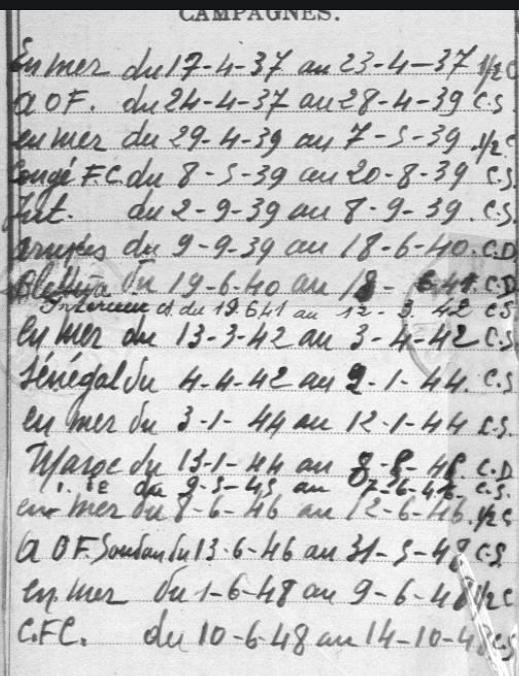 CAMPAGNES.
En mer du 17-4-37 au 23-4-37 1/2 C
A O F. du 24-4-37 au 28-4-39 C.S.
en mer du 29-4-39 au 7-5-39 1/2 C
Congé F.C. du 8-5-39 au 20-8-39 C.S.
Int. du 2-9-39 au 8-9-39. C.S.
armées du 9-9-39 au 18-6-40. C.D
du 19-6-40 au 18- C.D
Interieur du 19.6.41 au 12-3. 42 C.S
en mer du 13-3-42 au 3-4-42 C.S
Sénégal du 4-4-42 au 2-1-44. C.S
en mer du 3-1-44 au 12-1-44 C.S.
Maroc du 13-1-44 au C.D
du 9-5-45 au C.S.
en mer du 8-6-46 au 12-6-46. 1/2 C
A O F. Soudan du 13-6-46 au 31-5-48 C.S
en mer du 1-6-48 au 9-6-48 1/2 C
C.F.C. du 10-6-48 au 14-10-4 C.S